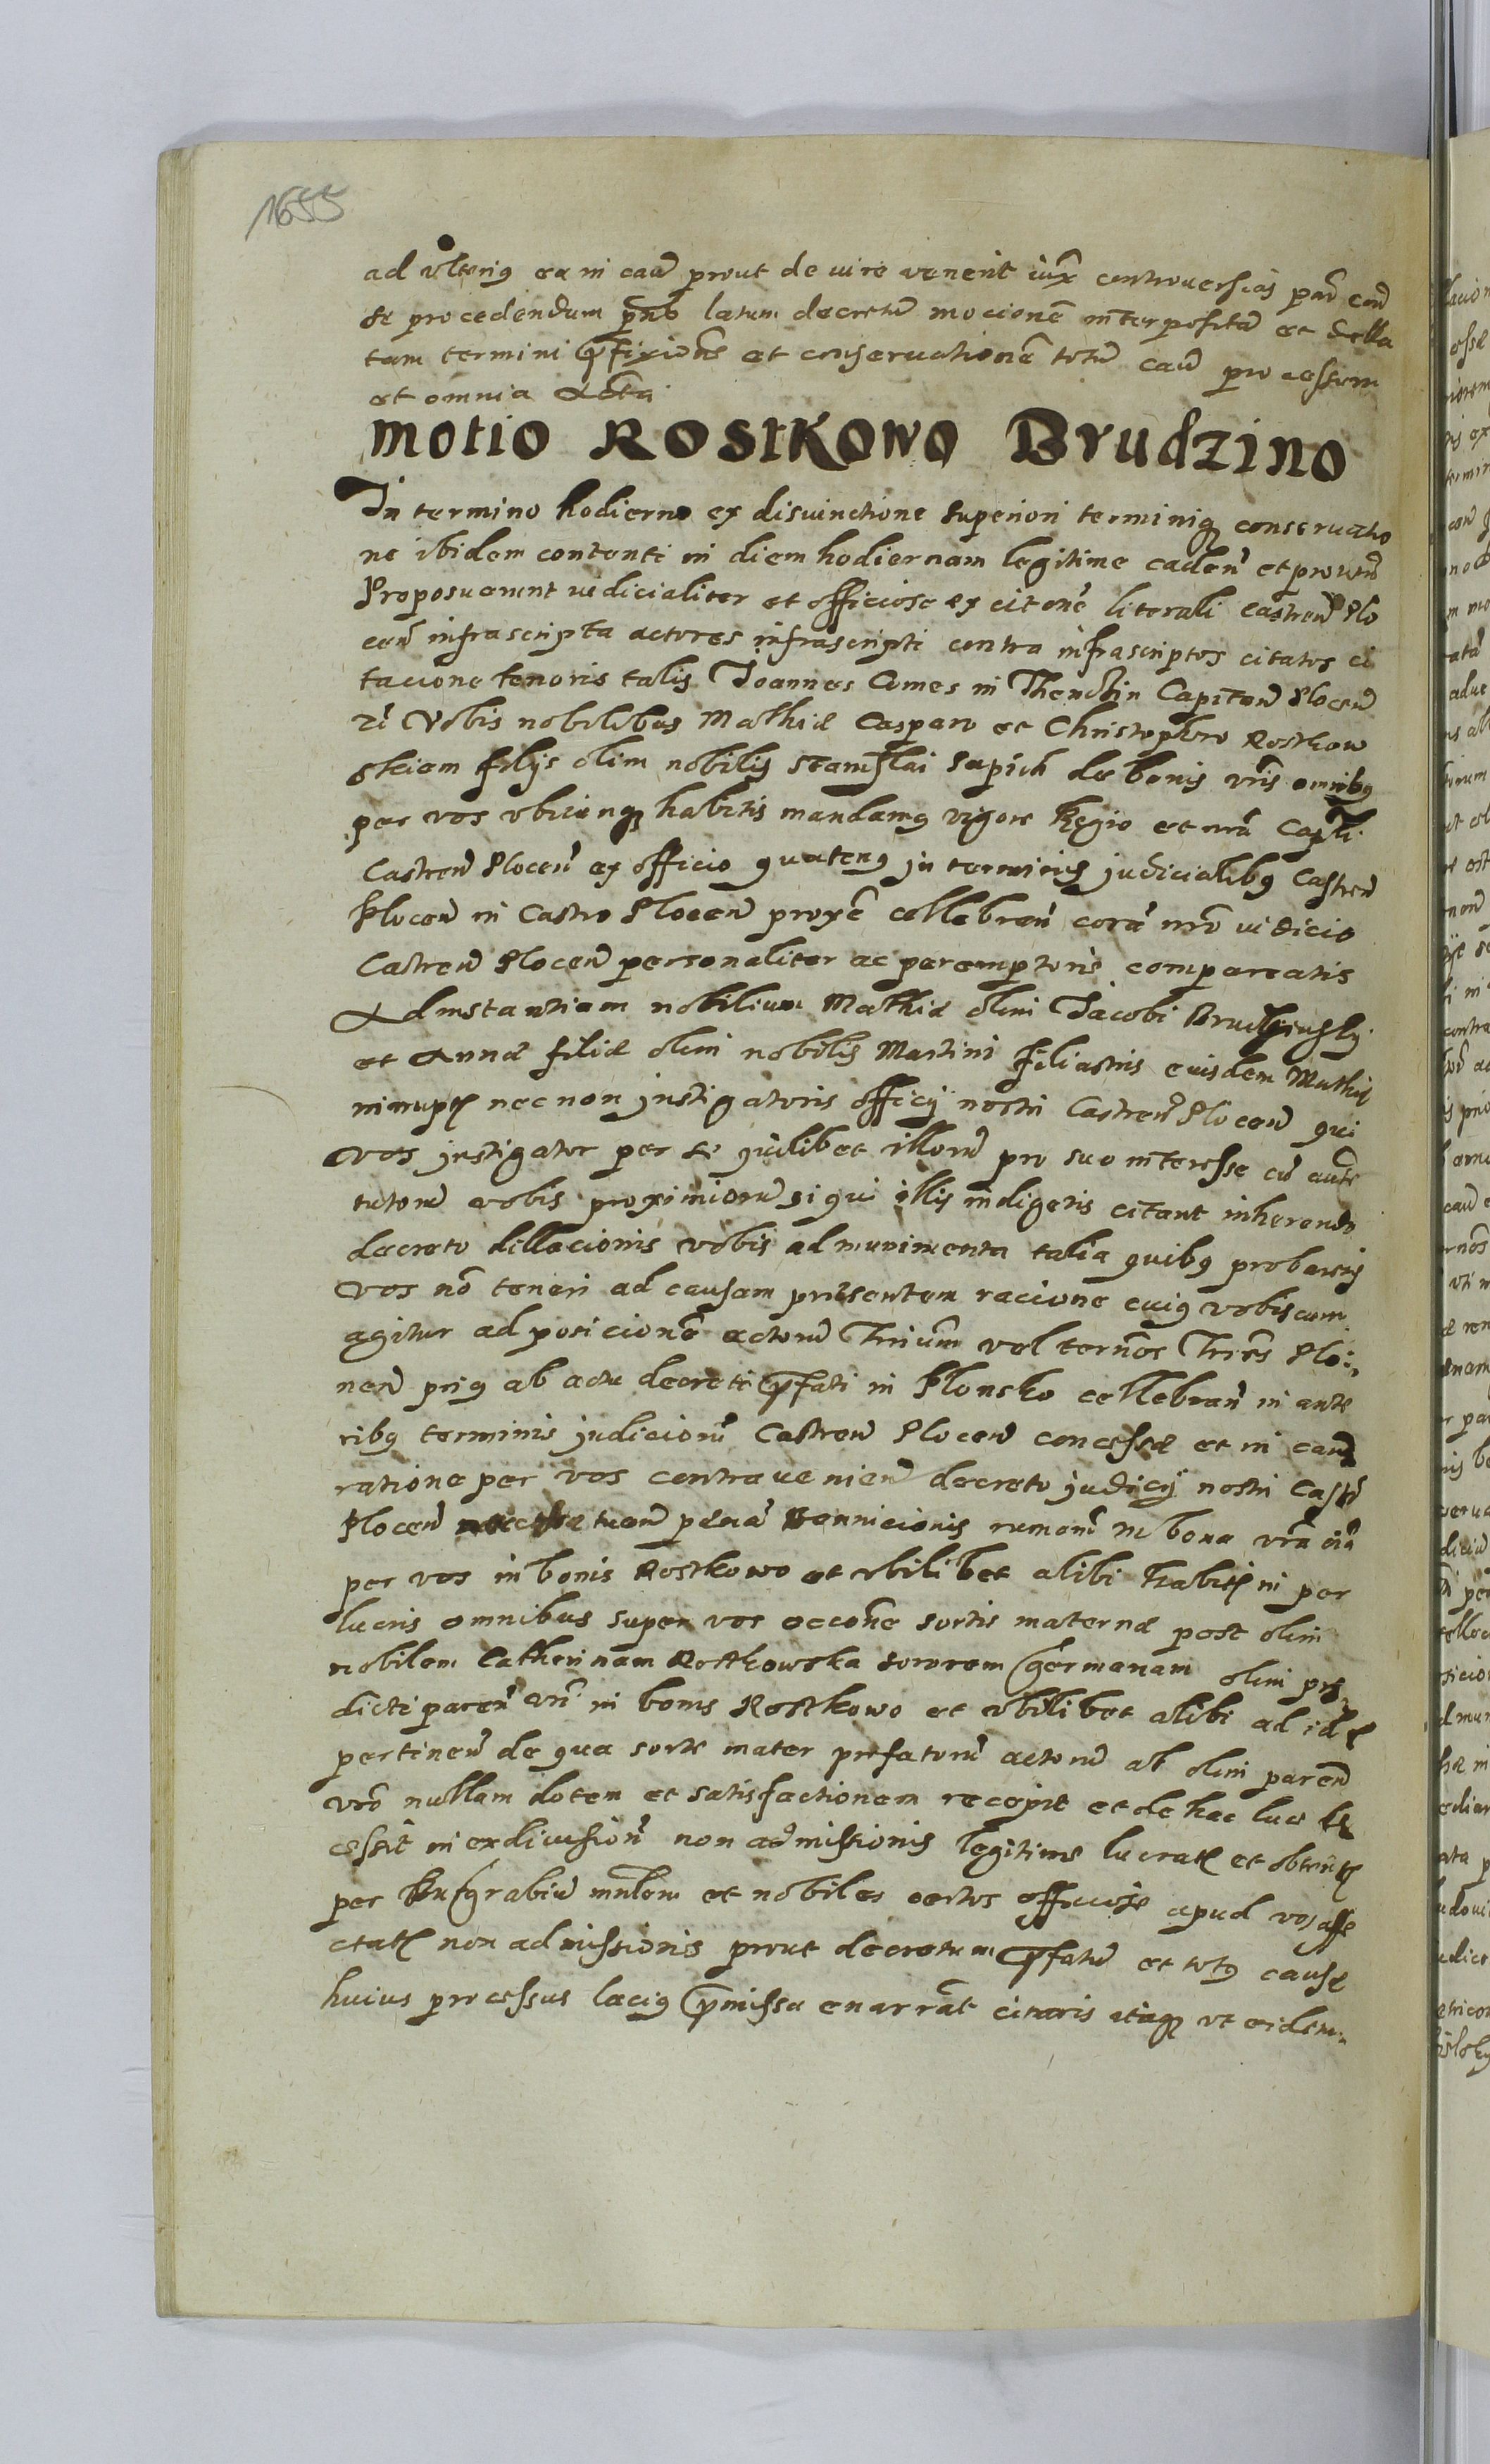 1655
ad vlterius ea in caũ prout de iure venerit iux̃ controuersias par̃ eorũ
se procedendum latum decretũ mocionẽ interpositã et dela
tam termini et conseruationẽ totũ caũ processum
et omnia Acta
Motio Rostkowo Brudzino
In termino hodierno ex disiunctione superiori terminiq; conseruatio
ne ibidem contenti in diem hodiernam legitime cadeñ et proueñ
Proposuerunt iudicialiter et officiose ex citoñe literali Castreñ Plo
ceñ infrascripta actores infrascripti contra infrascriptos citatos ci
tacione tenoris talis Joannes Comes in Thenczin Capitañ Ploceñ
Vobis nobilibus Mathiæ Casparo et Christophoro Rostkow
skiem filijs olim nobilis Stanislai de bonis vrĩs omnibus
per vos vbicunq; habitis mandamus vigore Regio et nrã Capĩt
Castreñ Ploceñ ex officio quatenus in terminis judicialibus Castreñ
Ploceñ in Castro Ploceñ proxẽ cellebrañ corã nrõ iudicio
Castreñ Ploceñ personaliter ac peremptorie compareatis
Ad instantiam nobilium Mathiæ olim Jacobi Brudzinsky
et Annæ filiæ olim nobilis Martini filiastris eiusdem Mathiæ
innuptæ necnon instigatoris officij nostri Castreñ Ploceñ qui
vos instigator per se quilibet illorũ pro suo interesse cũ autẽ
tutorũ vobis proximiorũ si qui illis indigetis citant inherendo
decreto dillacionis vobis ad munimenta talia quibus probaretis
vos nõ teneri ad causam præsentem racione cuius vobiscum
agitur ad posicionẽ actorũ Triũm vel terños Trĩes Plo:
neñ prius ab actu decreti p̃fati in Plonsko cellebrañ in ante
ribus terminis judiciorũ Castreñ Ploceñ concessæ et in caũ
ratione per vos contraueniẽ decreto judicij nostri Castr̃
Ploceñ penã bannicionis in bona vrã oĩa
per vos in bonis Rostkowo et vbilibet alibi habitæ in per
lucris omnibus super vos occoñe sortis maternæ post olim
nobilem Catherinam Rostkowska sororem germanam olim præ
dicti pareñ vrĩ in bonis Rostkowo et vbilibet alibi ad id
pertineñ de qua sorte mater præfatorũ actorũ ab olim pareñ
vrõ nullam dotem et satisfactionem recepit et de hac luce
cessit in exdiuisioñ non admissionis legitime lucratæ et obtentæ
per Burgrabiũ et nobiles certos officiose apud vos affe
ctatæ non admissionis prout decretum p̃fatũ et totus causæ
huius processus lacius p̃missa enarrãt citaris itaq; vt eidem